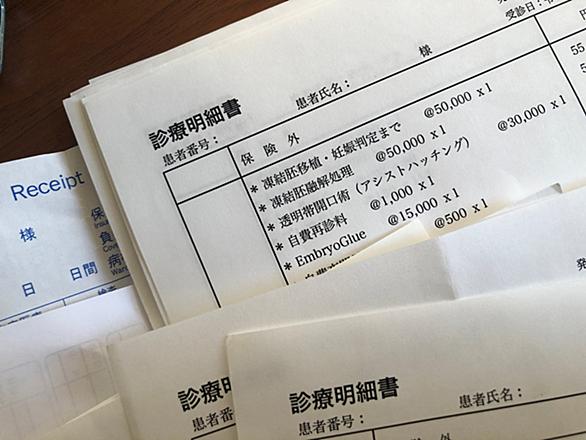 診療明細書
患者番号:
患者氏名:
様
受診日:
保 険 外
* 凍結胚移植・妊娠判定まで @50,000 x 1
* 凍結胚融解処理 @50,000 x 1
* 透明帯開口術 (アシストハッチング) @30,000 x 1
* 自費再診料 @1,000 x 1
* EmbryoGlue @15,000 x 1
@500 x 1
円
55
Receipt
様
日 日間
保
負
病
診療明
患者番
診療明細書
患者番号:
患者氏名:
外
発